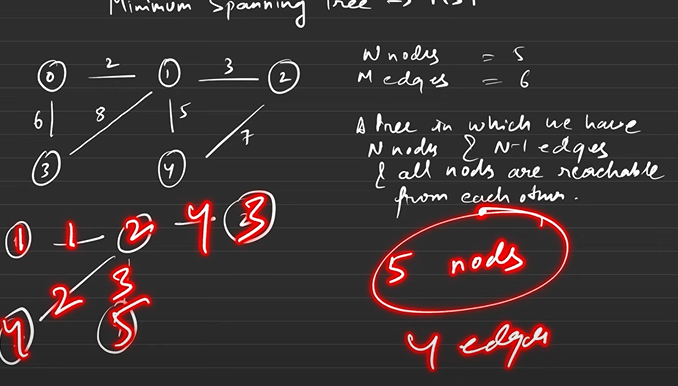 Minimum Spanning Tree → MST
0 2 1 3 2
N nodes = 5
M edges = 6
6 8 5 7
3 4
A tree in which we have
N nodes & N-1 edges
& all nodes are reachable
from each other.
1 1 2 4 3
2 3
4 5
5 nods
4 edges